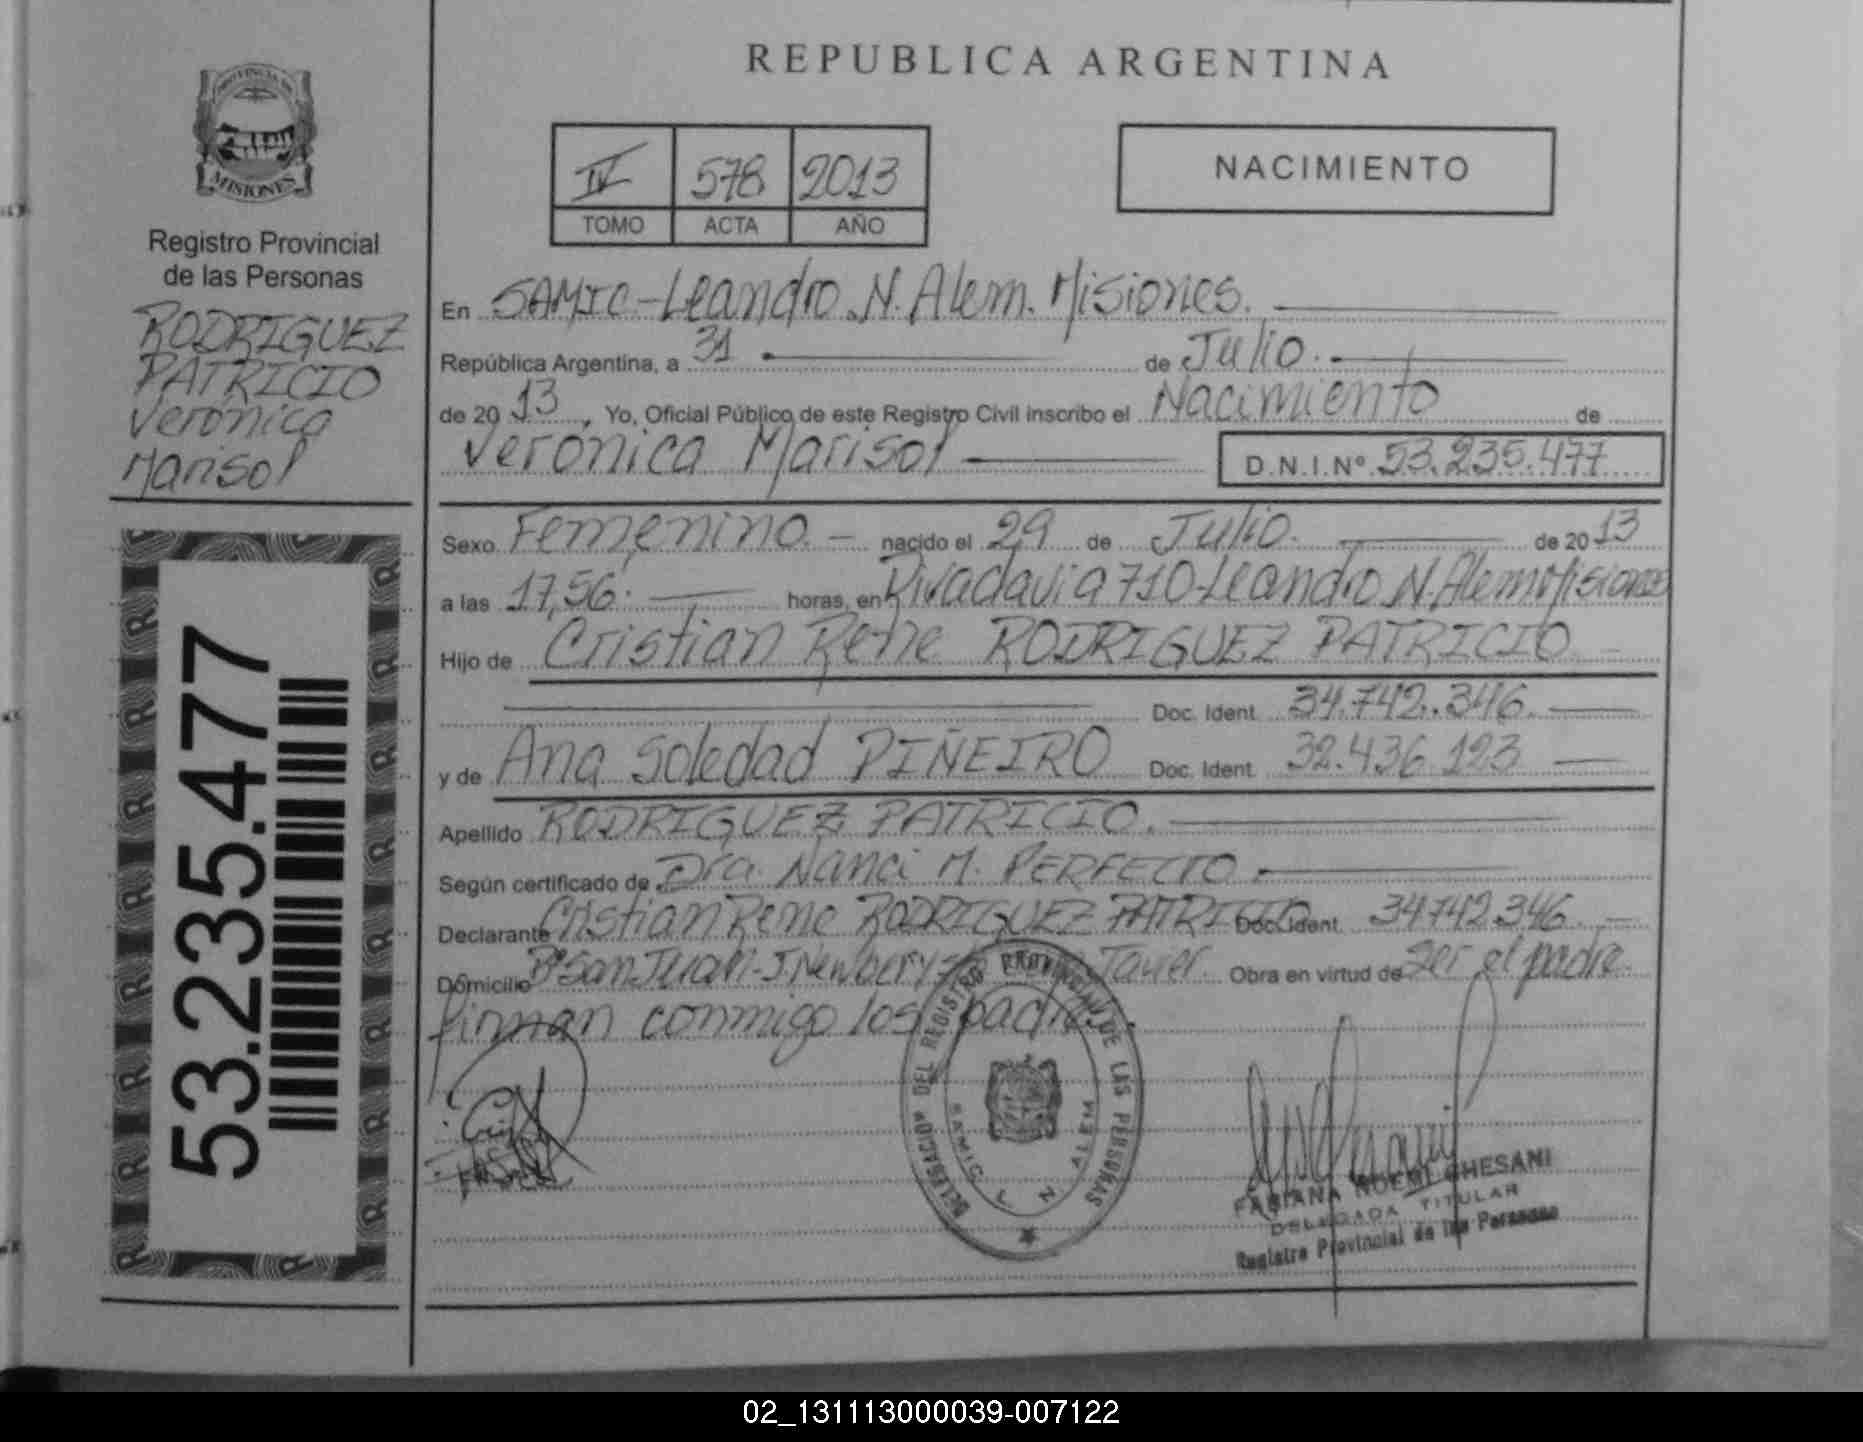 PROVINCIA DE
MISIONES
Registro Provincial
de las Personas
RODRIGUEZ
PATRICIO
Verónica
Marisol
53.235.477
REPUBLICA ARGENTINA
IV 578 2013
TOMO ACTA AÑO
NACIMIENTO
En SAMIC-Leandro.N.Alem.Misiones.
República Argentina, a 31 de Julio.
de 20 13, Yo, Oficial Público de este Registro Civil inscribo el Nacimiento de
Verónica Marisol D.N.I.Nº 53.235.477
Sexo Femenino. nacido el 29 de Julio. de 20 13
a las 17,56. horas, en Rivadavia 710-Leandro N.Alem Misiones
Hijo de Cristian Rene RODRIGUEZ PATRICIO
Doc. Ident. 34.742.346.
y de Ana Soledad PIÑEIRO Doc. Ident. 32.436.123
Apellido RODRIGUEZ PATRICIO.
Según certificado de Dra. Nanci M. PERFECTO.
Declarante Cristian Rene RODRIGUEZ PATRICIO Doc. Ident. 34742346.
Domicilio Bº San Juan-J.Newbery Javier. Obra en virtud de Ser el padre.
firman conmigo los padres.
DELEGACION DEL REGISTRO PROVINCIAL DE LAS PERSONAS
SAMIC L N ALEM
FABIANA NOEMI GHESANI
DELEGADA TITULAR
Registro Provincial de las Personas
02_131113000039-007122